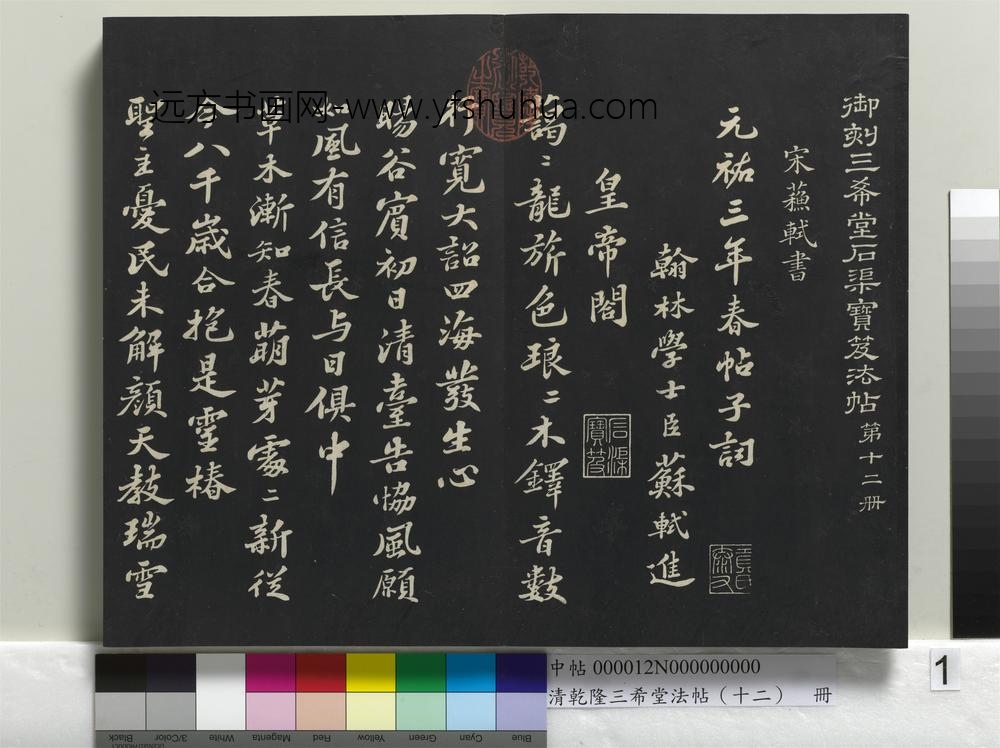 御刻三希堂石渠寶笈法帖第十二冊
宋蘓軾書
元祐三年春帖子詞
翰林學士臣蘇軾進
皇帝閣
石渠寶笈
藹〻龍旂色琅〻木鐸音數
行寬大詔四海發生心
暘谷賓初日清臺告協風願
如風有信長与日俱中
草木漸知春萌芽處〻新從
今八千歲合抱是靈椿
聖主憂民未解顏天教瑞雪
远方书画网-www.yfshuhua.com
中帖 000012N000000000
清乾隆三希堂法帖（十二） 冊
1
Blue Cyan Green Yellow Red Magenta White 3/Color Black